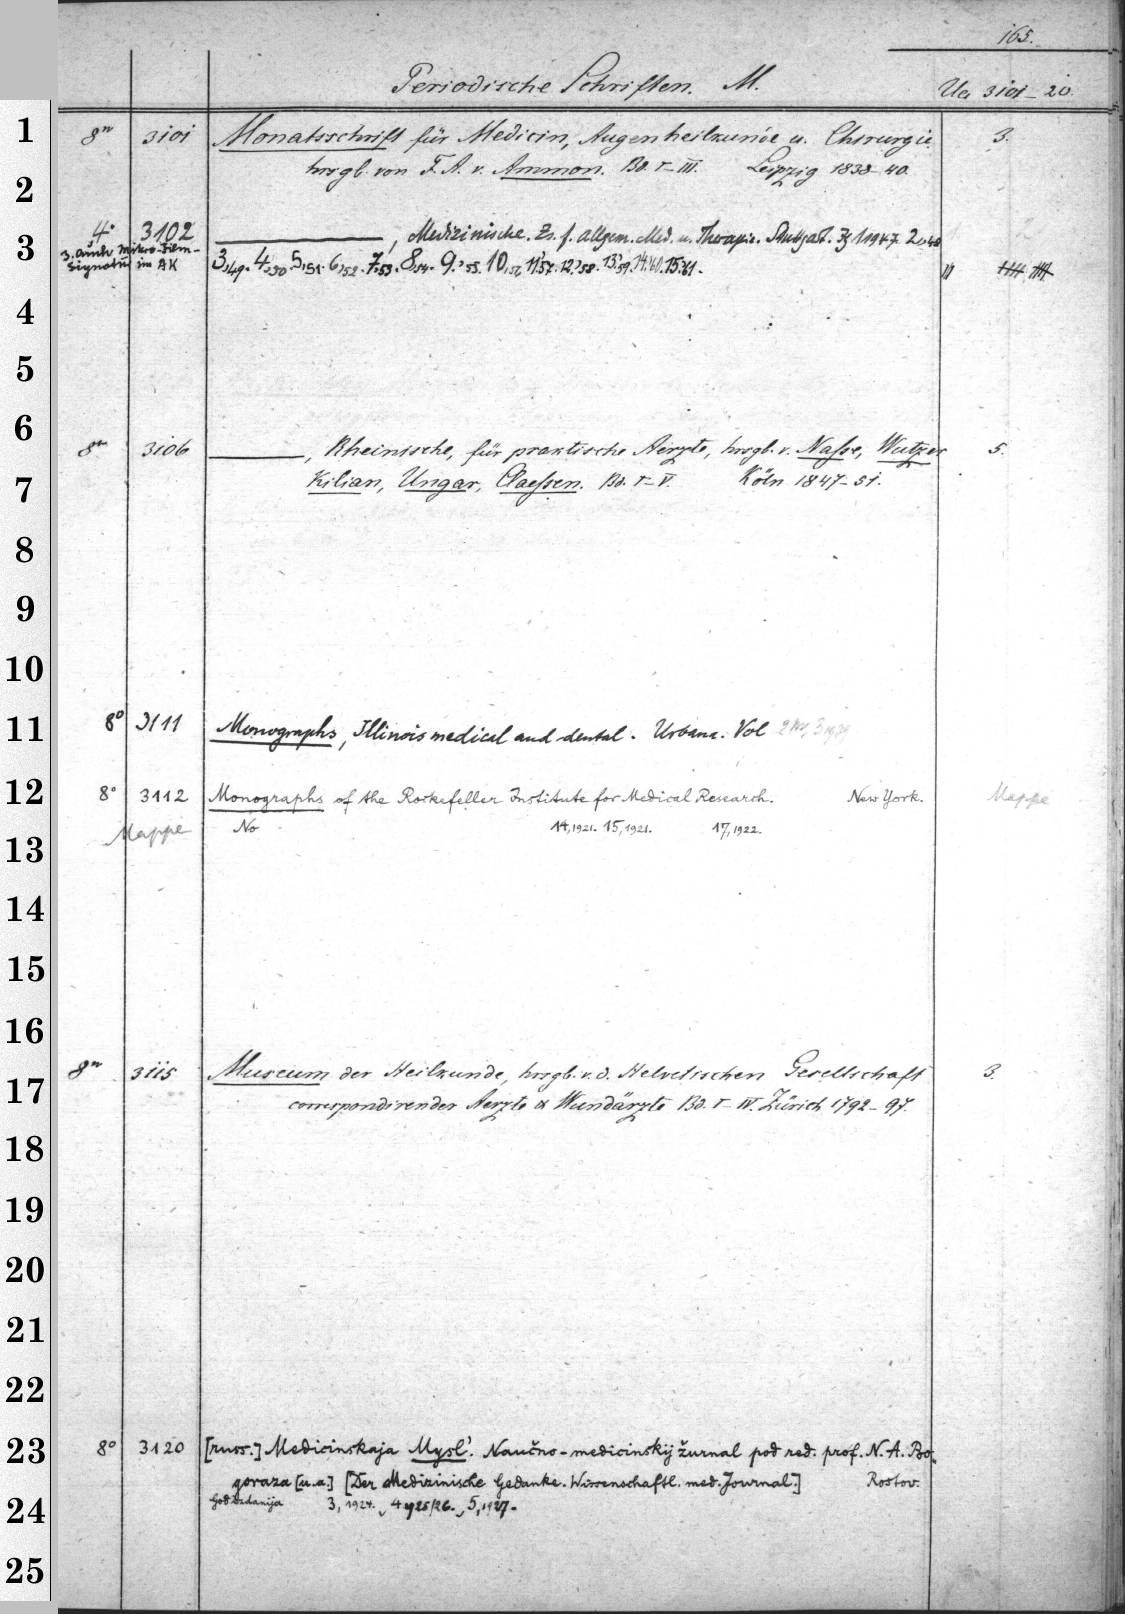 165.
Periodische Schriften. M.
Ue 3101-20.
8° 3101 Monatsschrift für Medicin, Augenheilkunde u. Chirurgie, 3.
hrsgb. von F. A. v. Ammon. Bd. I-III. Leipzig 1838-40.
4° 3102 ———, Medizinische. Zs. f. allgem. Med. u. Therapie. Stuttgart. Jg 1,1947. 2,48
z. auch Mikro-Film-
Signatur im AK 3,49. 4,50. 5,51. 6,52. 7,53. 8,54. 9,'55. 10,56. 11,'57. 12,'58. 13,'59. 14,'60. 15,'61.
8° 3106 ———, Rheinische, für praktische Aerzte, hrsgb. v. Nasse, Wutzer 5.
Kilian, Ungar, Claessen. Bd. I-V. Köln 1847-51.
8° 3111 Monographs, Illinois medical and dental. Urbana. Vol
8° 3112 Monographs of the Rockefeller Institute for Medical Research. New York. Mappe
Mappe No 14,1921. 15,1921. 17,1922.
8° 3115 Museum der Heilkunde, hrsgb. v. d. Helvetischen Gesellschaft 3.
correspondirender Aerzte & Wundärzte Bd. I-IV. Zürich 1792-97.
8° 3120 [russ.] Medicinskaja Mysl'. Naučno-medicinskij žurnal pod red. prof. N. A. Bo-
goraza [u.a.] [Der Medizinische Gedanke. Wissenschaftl. med. Journal.] Rostov.
God izdanija 3,1924. 4,1925/26. 5,1927.
1
2
3
4
5
6
7
8
9
10
11
12
13
14
15
16
17
18
19
20
21
22
23
24
25